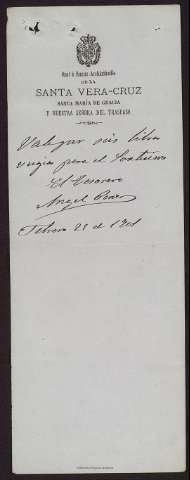 Real é Ilustre Archicofradía
DE LA
SANTA VERA-CRUZ
SANTA MARÍA DE GRACIA
Y NUESTRA SEÑORA DEL TRASPASO
Vale por seis libras
para el
El Tesorero
Angel
Febrero 21 de 1901